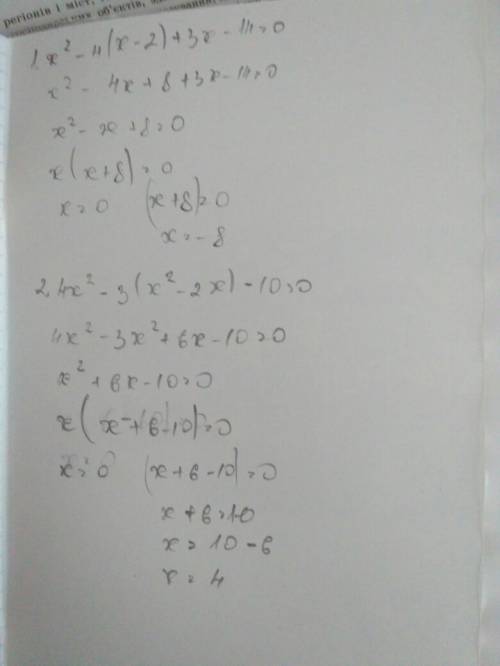 регіонів і міст,
об'єктів,
1. x² - 4(x-2) + 3x - 14=0
x² - 4x + 8 + 3x - 14=0
x² - x + 8=0
x(x+8)=0
x=0 (x+8)=0
x=-8
2. 4x² - 3(x² - 2x) - 10=0
4x² - 3x² + 6x - 10=0
x² + 6x - 10=0
x(x+6-10)=0
x=0 (x+6-10)=0
x+6=10
x=10-6
x=4